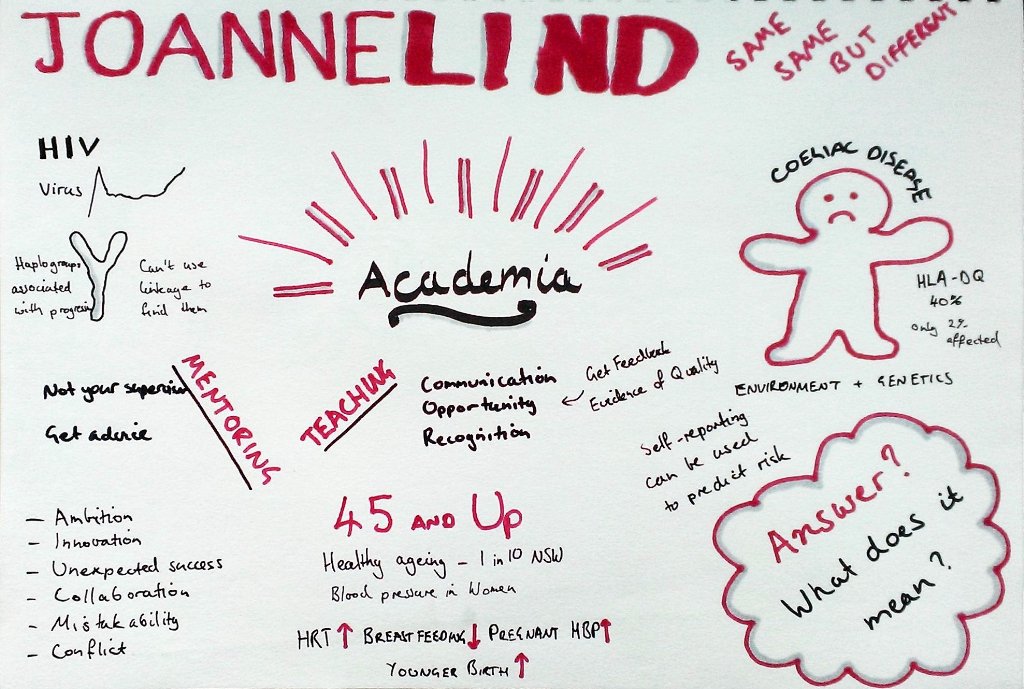 JOANNE LIND
SAME
SAME
BUT
DIFFERENT
HIV
Virus
Haplogroups
associated
with progression
Can't use
linkage to
find them
Academia
COELIAC DISEASE
HLA-DQ
40%
only 2%
affected
ENVIRONMENT + GENETICS
MENTORING
Not your supervisor
Get advice
TEACHING
Communication
Opportunity
Recognition
← Get Feedback
Evidence of Quality
Self-reporting
can be used
to predict risk
- Ambition
- Innovation
- Unexpected success
- Collaboration
- Mistakability
- Conflict
45 AND UP
Healthy ageing - 1 in 10 NSW
Blood pressure in Women
HRT ↑ BREASTFEEDING ↓ PREGNANT HBP ↑
YOUNGER BIRTH ↑
Answer?
What does it
mean?